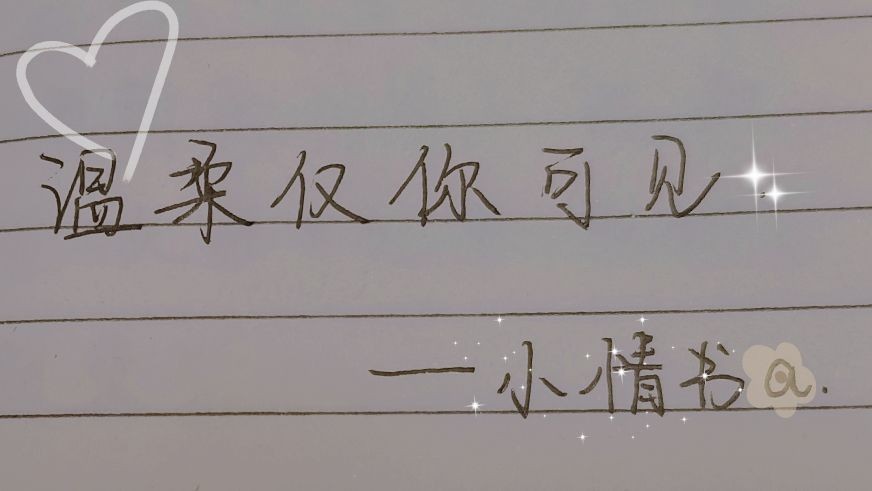 温柔仅你可见
—小情书@.